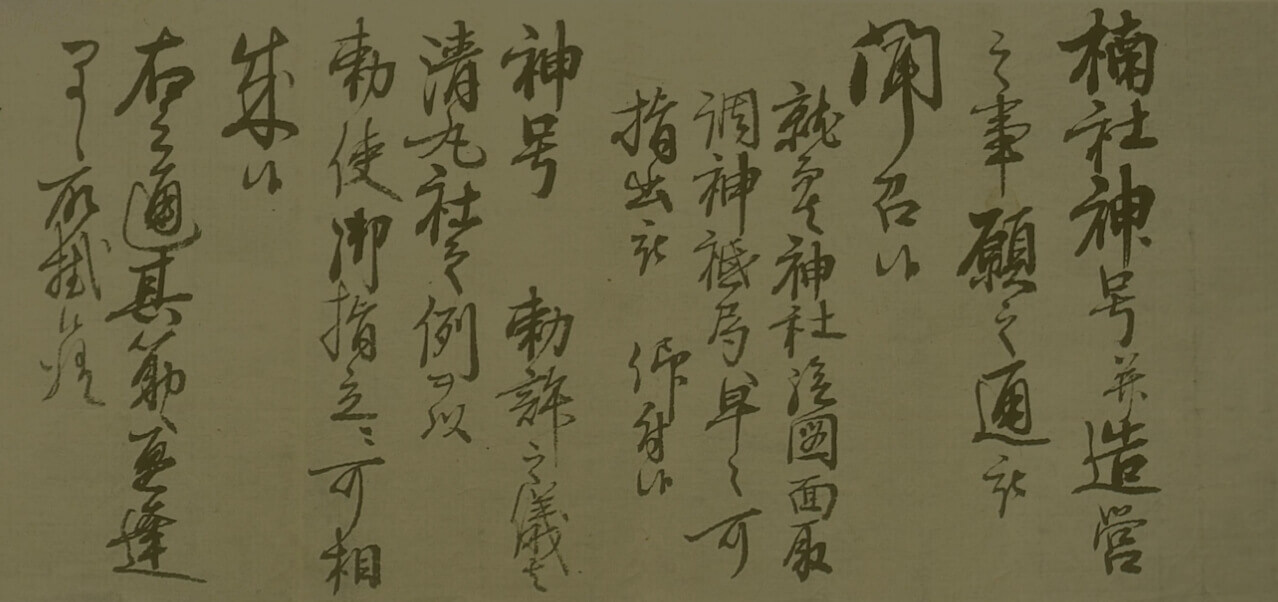 楠社神号并造営
之事願之通被
聞召候
就而者神社絵図面取
調神祇局へ早々可
指出被 仰付候
神号 勅許之儀者
清丸社之例ヲ以
勅使御指立ニ可相
成候
右之通其筋へ
早々